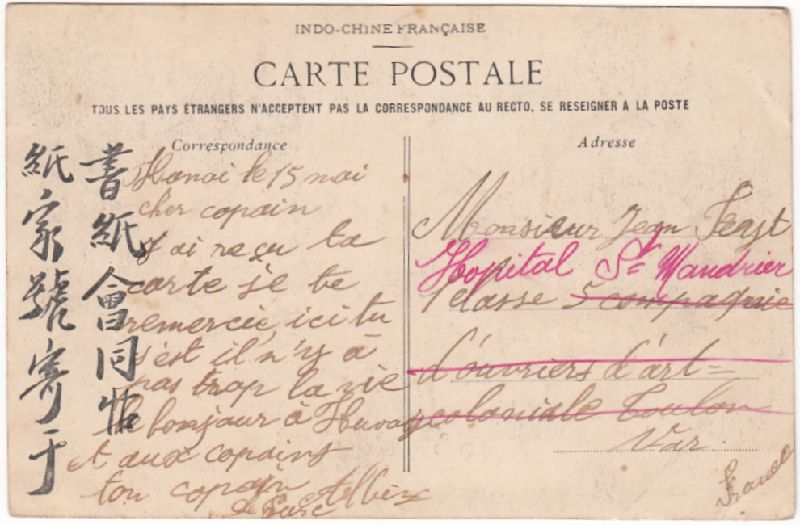 INDO-CHINE FRANÇAISE
CARTE POSTALE
TOUS LES PAYS ÉTRANGERS N'ACCEPTENT PAS LA CORRESPONDANCE AU RECTO, SE RESEIGNER A LA POSTE
Correspondance
Hanoi le 15 mai
cher copain
J'ai reçu ta
carte je te
remercie, ici tu
s'est il n'y à
pas trop la vie
le bonjour à
et aux copains
ton copain
Adresse
Monsieur Jean
Hopital St Mandrier
classe 5 compagnie
d'ouvriers d'art=
coloniale Toulon
Var
France
書紙會同
紙家號寄于